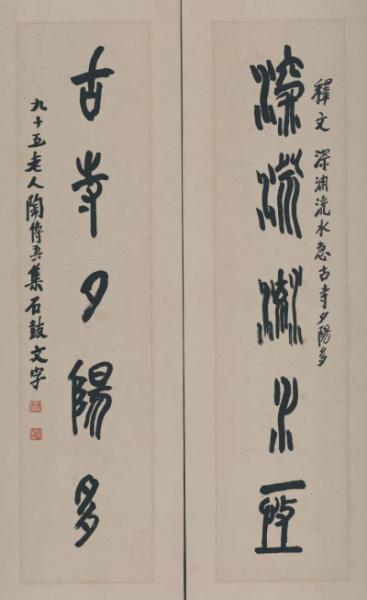 釋文 深淵流水急古寺夕陽多
深淵流水亟
古寺夕陽多
九十五老人陶博吾集石鼓文字